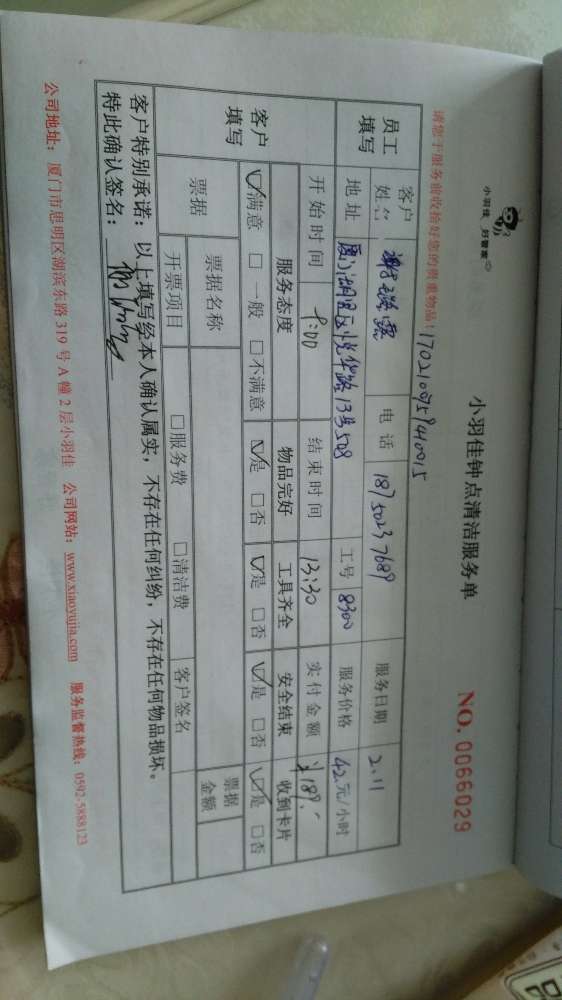 小羽佳 好管家
小羽佳钟点清洁服务单
NO. 0066029
请您于服务前收拾好您的贵重物品！
员工填写 客户姓名 电话 18750237689 服务日期 2.11
地址 13号508 工号 8300 服务价格 42.元/小时
开始时间 9:00 结束时间 13:30 实付金额 ¥189.
客户填写 服务态度 物品完好 工具齐全 安全结束 收到卡片
☑满意 □一般 □不满意 ☑是 □否 ☑是 □否 ☑是 □否 ☑是 □否
票据 票据名称 票据金额
开票项目 □服务费 □清洁费 客户签名
客户特别承诺：以上填写经本人确认属实，不存在任何纠纷，不存在任何物品损坏。
特此确认签名：
公司地址：厦门市思明区湖滨东路 319 号 A 幢 2 层小羽佳 公司网站：www.xiaoyujia.com 服务监督热线：0592-5888123